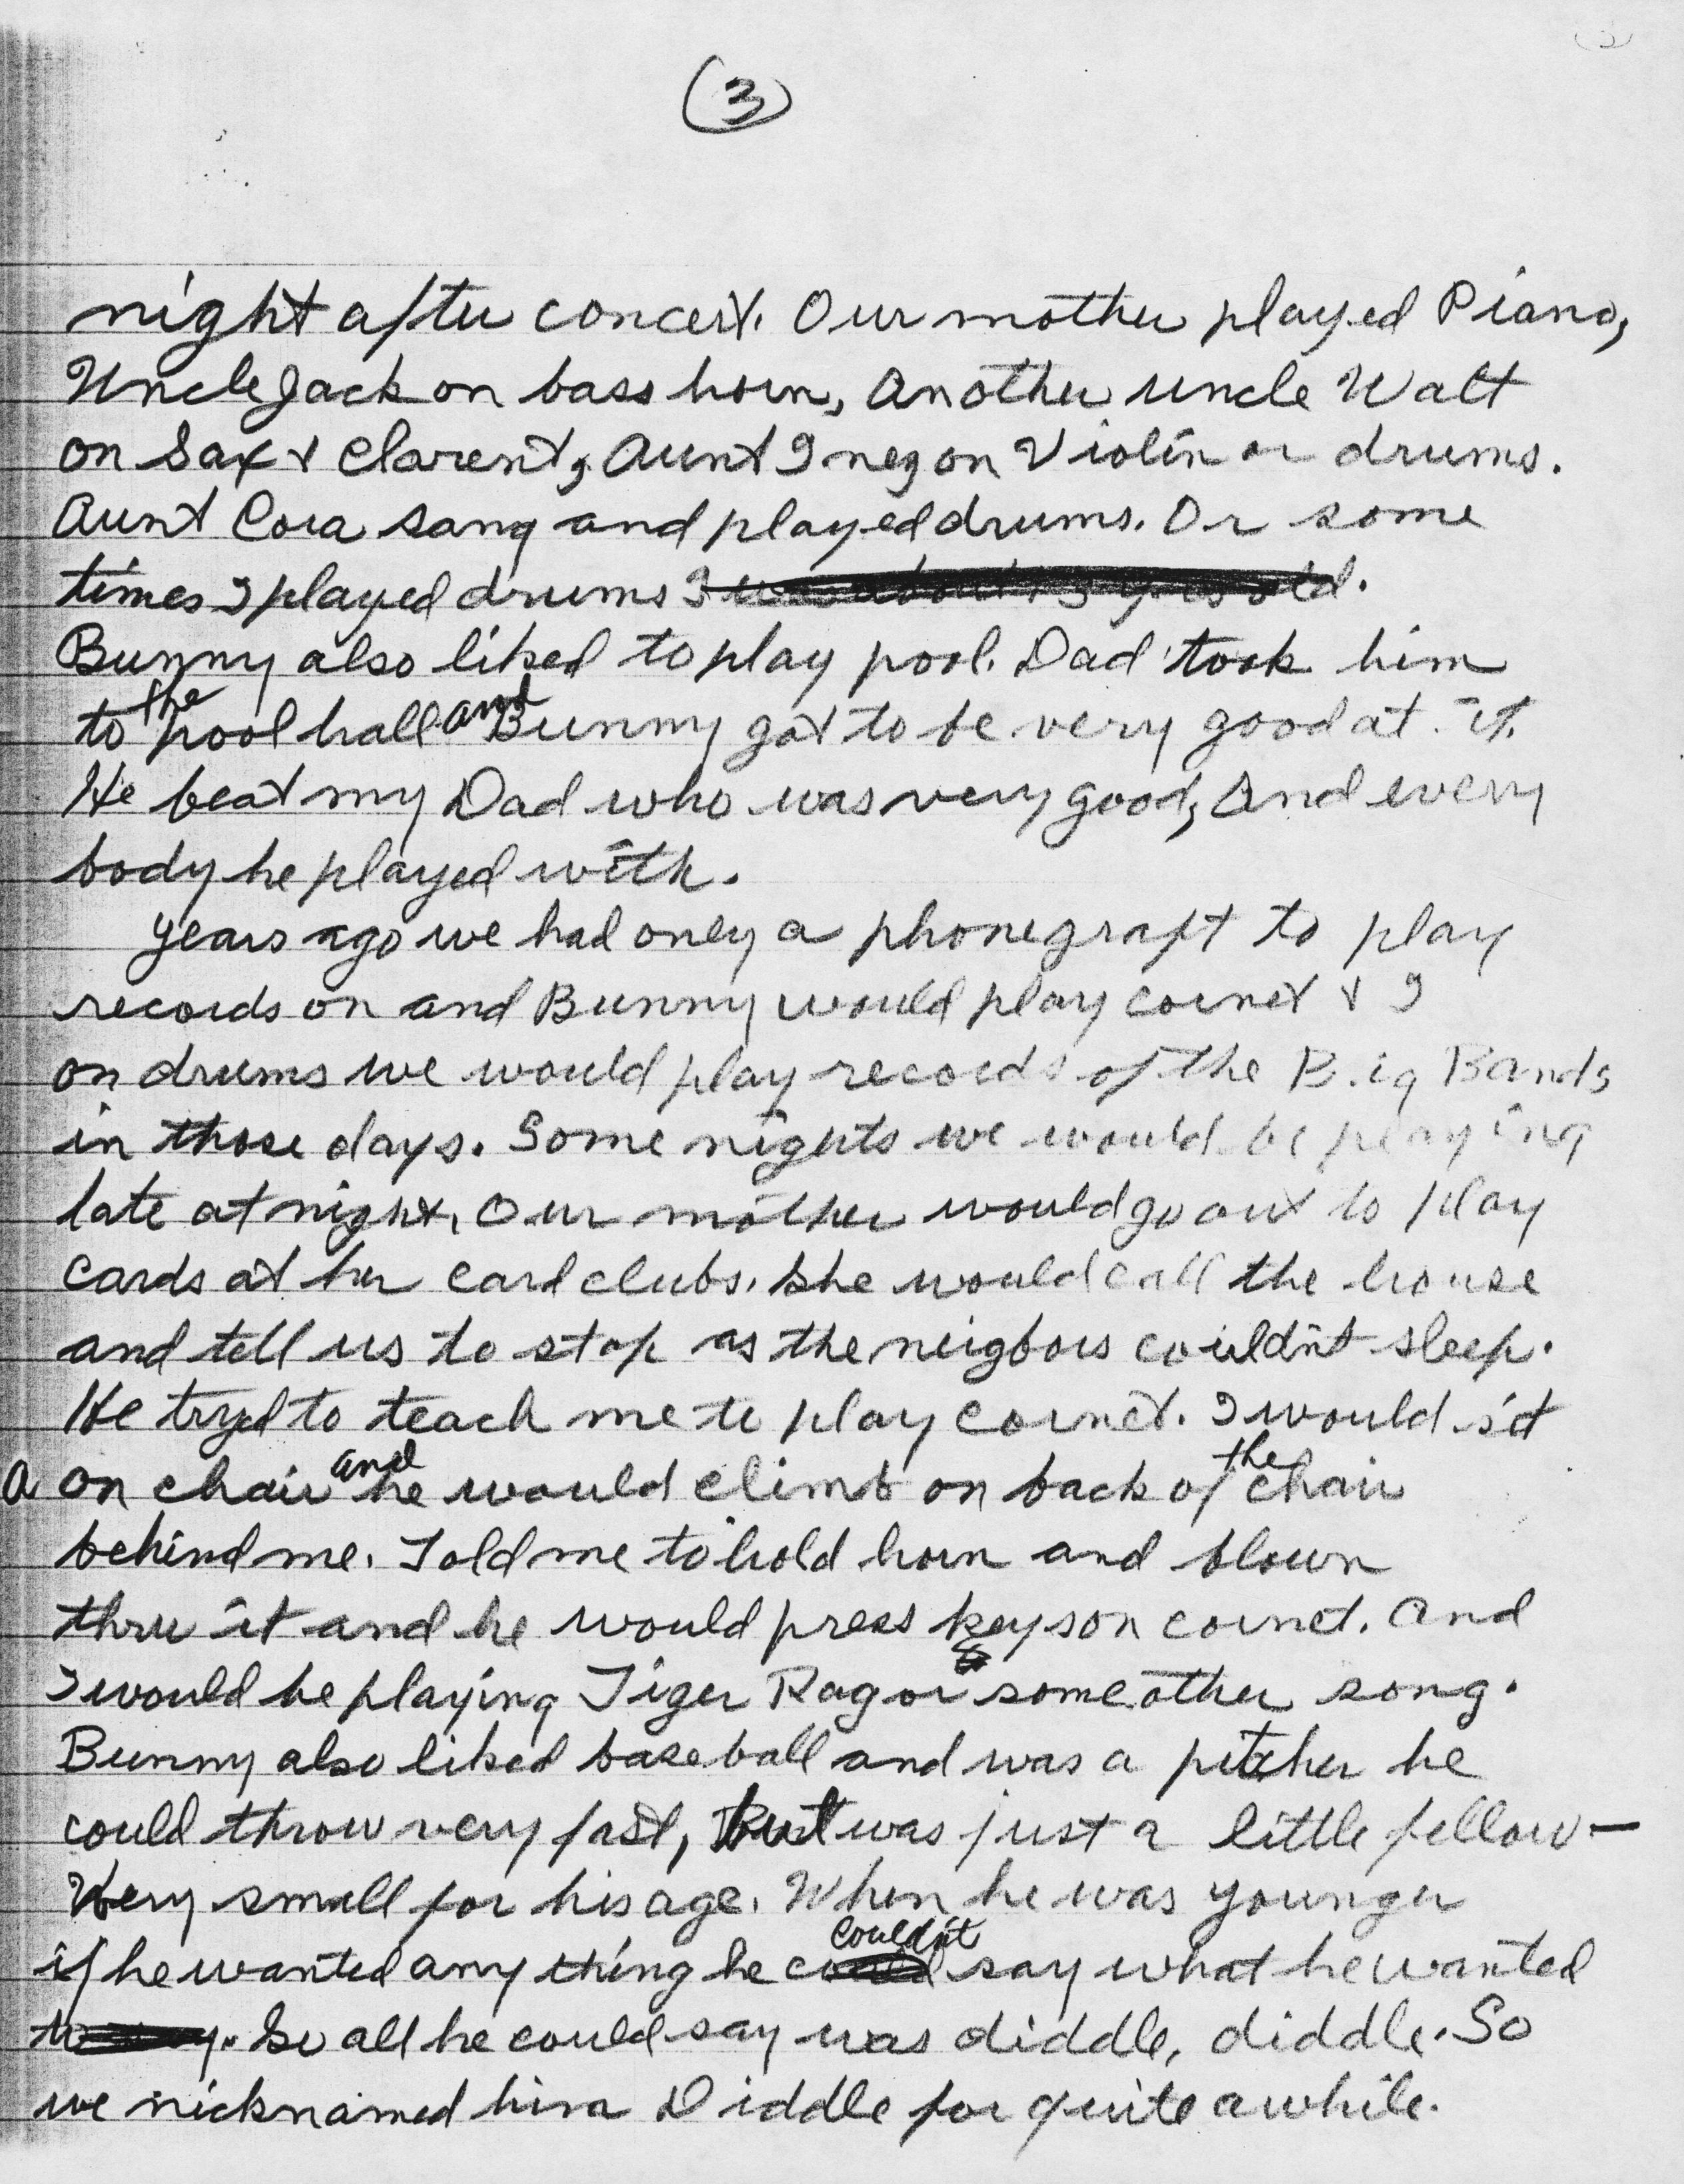 (3)
night after concert. Our mother played Piano,
Uncle Jack on bass horn, Another uncle Walt
on Sax & Clarent, Aunt Inez on Violin or drums.
Aunt Cora sang and played drums. Or some
times I played drums I was about 13 years old.
Bunny also liked to play pool. Dad took him
to the pool hall and Bunny got to be very good at it.
He beat my Dad who was very good, And every
body he played with.
years ago we had only a phonegraft to play
records on and Bunny would play cornet & I
on drums we would play records of the Big Bands
in those days. Some nights we would be playing
late at night. Our mother would go out to play
cards at her card clubs. She would call the house
and tell us to stop as the neigbors couildn't sleep.
He tryed to teach me to play cornet. I would sit
on a chair and he would climb on back of the chair
behind me. Told me to hold horn and blown
thru it and he would press keys on cornet. And
I would be playing Tiger Rag or some other song.
Bunny also liked baseball and was a pitcher he
could throw very fast, but was just a little fellow—
Very small for his age. When he was younger
if he wanted any thing he couldn't say what he wanted
to say. So all he could say was diddle, diddle. So
we nicknamed him Diddle for quite awhile.